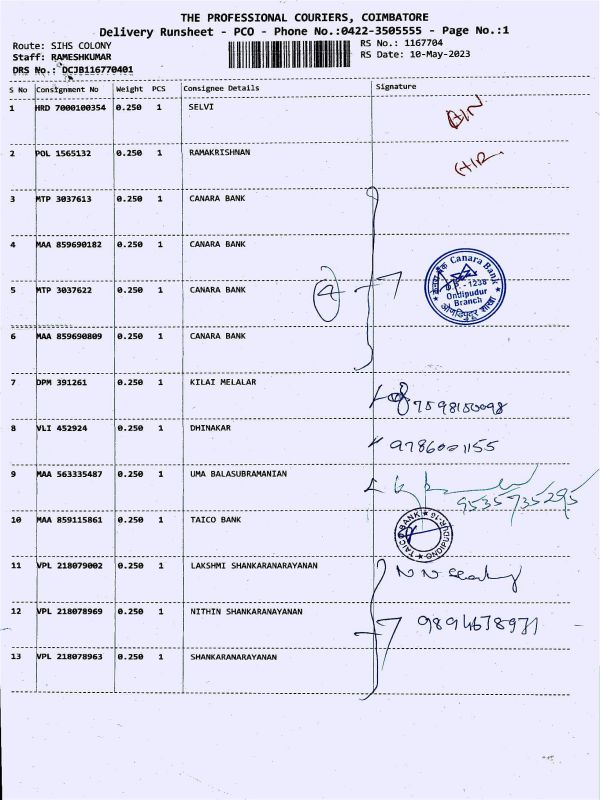 THE PROFESSIONAL COURIERS, COIMBATORE
Delivery Runsheet - PCO - Phone No.:0422-3505555 - Page No.:1
Route: SIHS COLONY
Staff: RAMESHKUMAR
DRS No.: DCJB116770401
RS No.: 1167704
RS Date: 10-May-2023
S No Consignment No Weight PCS Consignee Details Signature
1 HRD 7000100354 0.250 1 SELVI
2 POL 1565132 0.250 1 RAMAKRISHNAN
3 MTP 3037613 0.250 1 CANARA BANK
4 MAA 859690182 0.250 1 CANARA BANK
5 MTP 3037622 0.250 1 CANARA BANK
4
Canara Bank
1238
Ondipudur
Branch
6 MAA 859690809 0.250 1 CANARA BANK
7 DPM 391261 0.250 1 KILAI MELALAR
7598150098
8 VLI 452924 0.250 1 DHINAKAR
9786001155
9 MAA 563335487 0.250 1 UMA BALASUBRAMANIAN
9535735295
10 MAA 859115861 0.250 1 TAICO BANK
TAICO BANK ONDIPUDUR-16
11 VPL 218079002 0.250 1 LAKSHMI SHANKARANARAYANAN
12 VPL 218078969 0.250 1 NITHIN SHANKARANAYANAN
9894678971
13 VPL 218078963 0.250 1 SHANKARANARAYANAN